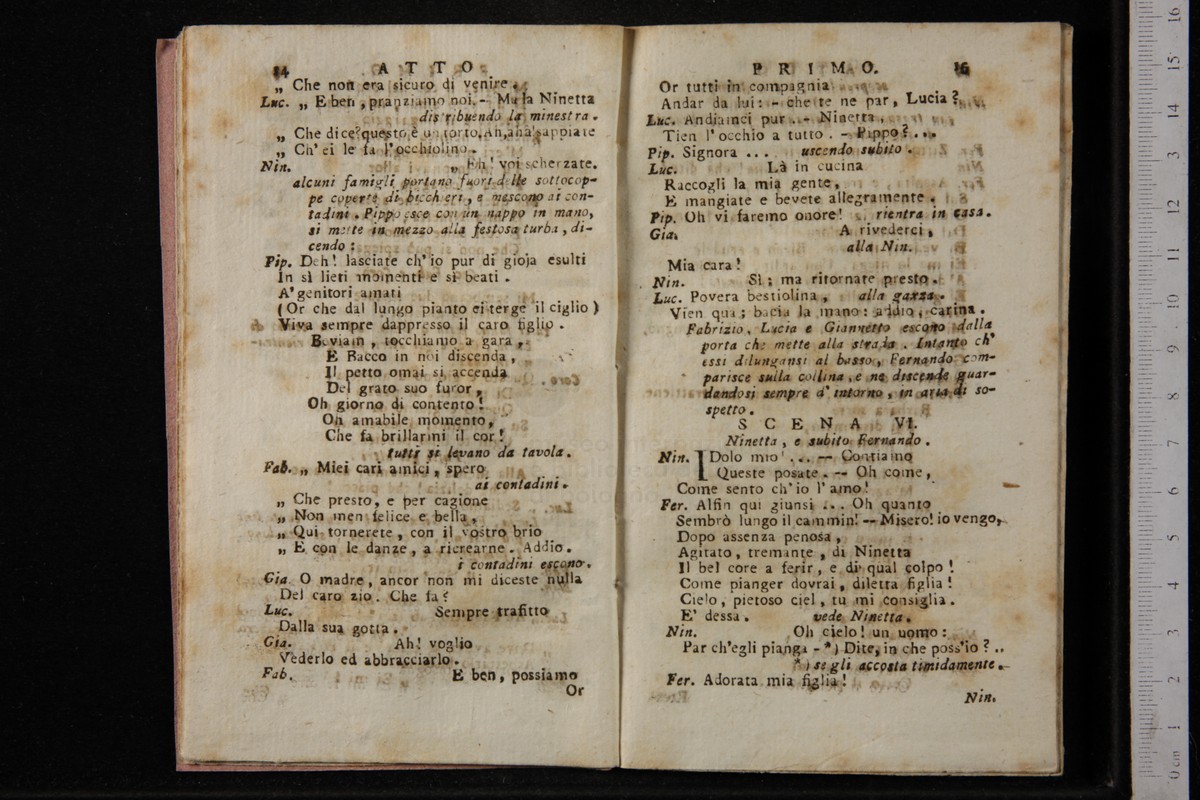 14 ATTO
„ Che non era sicuro di venire.
Luc. „ E ben, pranziamo noi. - Ma la Ninetta
distribuendo la minestra.
„ Che dice? questo è un torto. Ah, ah! sappiate
„ Ch' ei le fa l'occhiolino.
Nin. „ Eh! voi scherzate.
alcuni famigli portano fuori delle sottocop-
pe coperte di bicchieri, e mescono ai con-
tadini. Pippo esce con un nappo in mano,
si mette in mezzo alla festosa turba, di-
cendo:
Pip. Deh! lasciate ch' io pur di gioja esulti
In sì lieti momenti e sì beati.
A' genitori amati
(Or che dal lungo pianto ei terge il ciglio)
Viva sempre dappresso il caro figlio.
Beviam, tocchiamo a gara,
E Bacco in noi discenda,
Il petto omai si accenda
Del grato suo furor,
Oh giorno di contento!
Oh amabile momento,
Che fa brillarmi il cor!
tutti si levano da tavola.
Fab. „ Miei cari amici, spero
ai contadini.
„ Che presto, e per cagione
„ Non men felice e bella,
„ Qui tornerete, con il vostro brio
„ E con le danze, a ricrearne. Addio.
i contadini escono.
Gia. O madre, ancor non mi diceste nulla
Del caro zio. Che fa?
Luc. Sempre trafitto
Dalla sua gotta.
Gia. Ah! voglio
Vederlo ed abbracciarlo.
Fab. E ben, possiamo
Or
PRIMO. 16
Or tutti in compagnia
Andar da lui: - che te ne par, Lucia?
Luc. Andiamci pur .. - Ninetta,
Tien l'occhio a tutto. - Pippo? ...
Pip. Signora ... uscendo subito.
Luc. Là in cucina
Raccogli la mia gente,
E mangiate e bevete allegramente.
Pip. Oh vi faremo onore! rientra in casa.
Gia. A rivederci,
alla Nin.
Mia cara!
Nin. Sì; ma ritornate presto.
Luc. Povera bestiolina, alla gazza.
Vien qua; bacia la mano: addio, carina.
Fabrizio, Lucia e Giannetto escono dalla
porta che mette alla strada. Intanto ch'
essi dilungansi al basso, Fernando com-
parisce sulla collina, e ne discende guar-
dandosi sempre d' intorno, in aria di so-
spetto.
SCENA VI.
Ninetta, e subito Fernando.
Nin. IDolo mio! ... -- Contiamo
Queste posate. -- Oh come,
Come sento ch'io l'amo!
Fer. Alfin qui giunsi ... Oh quanto
Sembrò lungo il cammin! -- Misero! io vengo,
Dopo assenza penosa,
Agitato, tremante, di Ninetta
Il bel core a ferir, e di qual colpo!
Come pianger dovrai, diletta figlia!
Cielo, pietoso ciel, tu mi consiglia.
E' dessa. vede Ninetta.
Nin. Oh cielo! un uomo:
Par ch'egli pianga - *) Dite, in che poss'io? ..
*) se gli accosta timidamente.
Fer. Adorata mia figlia!
Nin.